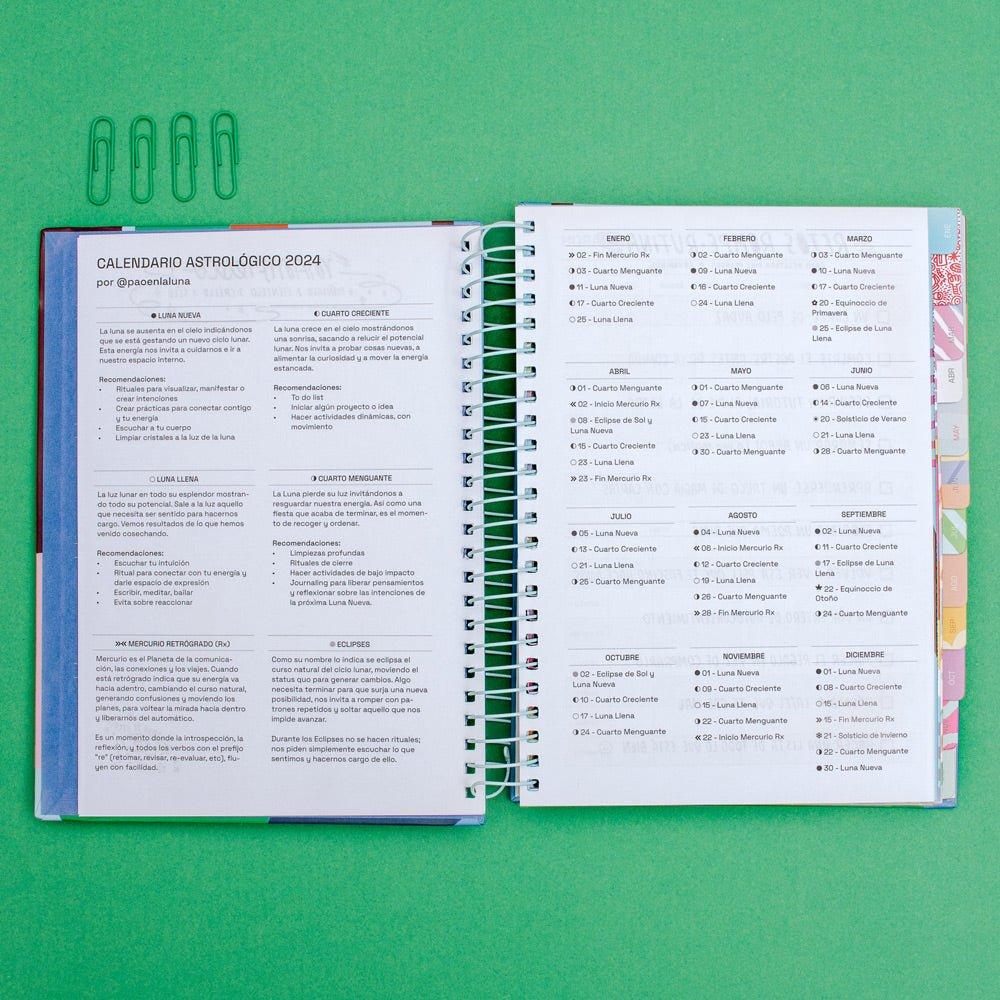 CALENDARIO ASTROLÓGICO 2024
por @paoenlaluna
● LUNA NUEVA
La luna se ausenta en el cielo indicándonos
que se está gestando un nuevo ciclo lunar.
Esta energía nos invita a cuidarnos e ir a
nuestro espacio interno.
Recomendaciones:
• Rituales para visualizar, manifestar o
crear intenciones
• Crear prácticas para conectar contigo
y tu energía
• Escuchar a tu cuerpo
• Limpiar cristales a la luz de la luna
◐ CUARTO CRECIENTE
La luna crece en el cielo mostrándonos
una sonrisa, sacando a relucir el potencial
lunar. Nos invita a probar cosas nuevas, a
alimentar la curiosidad y a mover la energía
estancada.
Recomendaciones:
• To do list
• Iniciar algún proyecto o idea
• Hacer actividades dinámicas, con
movimiento
○ LUNA LLENA
La luz lunar en todo su esplendor mostran-
do todo su potencial. Sale a la luz aquello
que necesita ser sentido para hacernos
cargo. Vemos resultados de lo que hemos
venido cosechando.
Recomendaciones:
• Escuchar tu intuición
• Ritual para conectar con tu energía y
darle espacio de expresión
• Escribir, meditar, bailar
• Evita sobre reaccionar
◑ CUARTO MENGUANTE
La Luna pierde su luz invitándonos a
resguardar nuestra energía. Así como una
fiesta que acaba de terminar, es el momen-
to de recoger y ordenar.
Recomendaciones:
• Limpiezas profundas
• Rituales de cierre
• Hacer actividades de bajo impacto
• Journaling para liberar pensamientos
y reflexionar sobre las intenciones de
la próxima Luna Nueva.
»« MERCURIO RETRÓGRADO (Rx)
Mercurio es el Planeta de la comunica-
ción, las conexiones y los viajes. Cuando
está retrógrado indica que su energía va
hacia adentro, cambiando el curso natural,
generando confusiones y moviendo los
planes, para voltear la mirada hacia dentro
y liberarnos del automático.
Es un momento donde la introspección, la
reflexión, y todos los verbos con el prefijo
"re" (retomar, revisar, re-evaluar, etc), flu-
yen con facilidad.
● ECLIPSES
Como su nombre lo indica se eclipsa el
curso natural del ciclo lunar, moviendo el
status quo para generar cambios. Algo
necesita terminar para que surja una nueva
posibilidad, nos invita a romper con pa-
trones repetidos y soltar aquello que nos
impide avanzar.
Durante los Eclipses no se hacen rituales;
nos piden simplemente escuchar lo que
sentimos y hacernos cargo de ello.
ENERO
» 02 - Fin Mercurio Rx
◑ 03 - Cuarto Menguante
● 11 - Luna Nueva
◐ 17 - Cuarto Creciente
○ 25 - Luna Llena
FEBRERO
◑ 02 - Cuarto Menguante
● 09 - Luna Nueva
◐ 16 - Cuarto Creciente
○ 24 - Luna Llena
MARZO
◑ 03 - Cuarto Menguante
● 10 - Luna Nueva
◐ 17 - Cuarto Creciente
✿ 20 - Equinoccio de
Primavera
● 25 - Eclipse de Luna
Llena
ABRIL
◑ 01 - Cuarto Menguante
« 02 - Inicio Mercurio Rx
● 08 - Eclipse de Sol y
Luna Nueva
◐ 15 - Cuarto Creciente
○ 23 - Luna Llena
» 23 - Fin Mercurio Rx
MAYO
◑ 01 - Cuarto Menguante
● 07 - Luna Nueva
◐ 15 - Cuarto Creciente
○ 23 - Luna Llena
◑ 30 - Cuarto Menguante
JUNIO
● 06 - Luna Nueva
◐ 14 - Cuarto Creciente
☀ 20 - Solsticio de Verano
○ 21 - Luna Llena
◑ 28 - Cuarto Menguante
JULIO
● 05 - Luna Nueva
◐ 13 - Cuarto Creciente
○ 21 - Luna Llena
◑ 25 - Cuarto Menguante
AGOSTO
● 04 - Luna Nueva
« 06 - Inicio Mercurio Rx
◐ 12 - Cuarto Creciente
○ 19 - Luna Llena
◑ 26 - Cuarto Menguante
» 28 - Fin Mercurio Rx
SEPTIEMBRE
● 02 - Luna Nueva
◐ 11 - Cuarto Creciente
● 17 - Eclipse de Luna
Llena
★ 22 - Equinoccio de
Otoño
◑ 24 - Cuarto Menguante
OCTUBRE
● 02 - Eclipse de Sol y
Luna Nueva
◐ 10 - Cuarto Creciente
○ 17 - Luna Llena
◑ 24 - Cuarto Menguante
NOVIEMBRE
● 01 - Luna Nueva
◐ 09 - Cuarto Creciente
○ 15 - Luna Llena
◑ 22 - Cuarto Menguante
« 22 - Inicio Mercurio Rx
DICIEMBRE
● 01 - Luna Nueva
◐ 08 - Cuarto Creciente
○ 15 - Luna Llena
» 15 - Fin Mercurio Rx
❄ 21 - Solsticio de Invierno
◑ 22 - Cuarto Menguante
● 30 - Luna Nueva
ENE
ABR
MAY
AGO
SEP
OCT